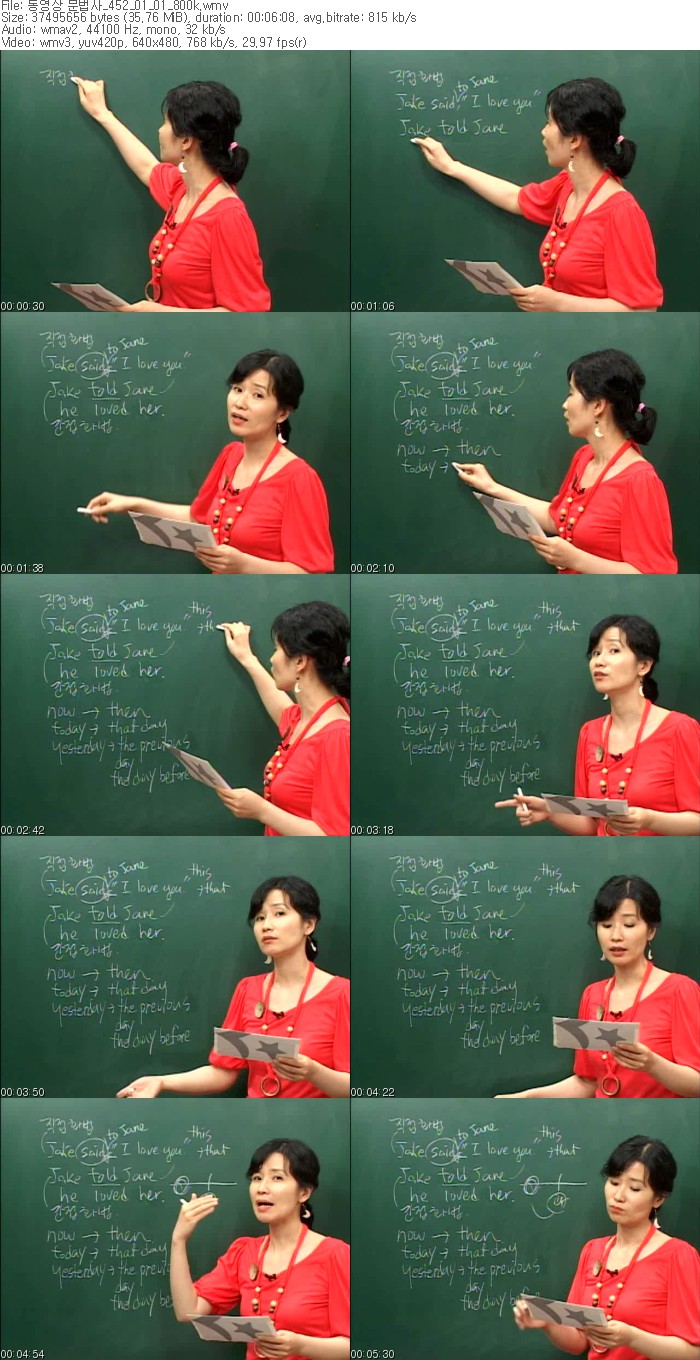 File: 동영상 문법사_452_01_01_800k.wmv
Size: 37495656 bytes (35.76 MiB), duration: 00:06:08, avg.bitrate: 815 kb/s
Audio: wmav2, 44100 Hz, mono, 32 kb/s
Video: wmv3, yuv420p, 640x480, 768 kb/s, 29.97 fps(r)
직접
00:00:30
직접화법
to Jane
Jake said, "I love you"
Jake told Jane
00:01:06
직접화법
to Jane
Jake said, "I love you."
Jake told Jane
he loved her.
간접화법.
00:01:38
직접화법
to Jane
Jake said, "I love you."
Jake told Jane
he loved her.
간접화법.
now → then
today →
00:02:10
직접화법
to Jane
this
Jake said, "I love you." → th
Jake told Jane
he loved her.
간접화법.
now → then
today → that day
yesterday → the previous
day
the day before
00:02:42
직접화법
to Jane
this
Jake said, "I love you." → that
Jake told Jane
he loved her.
간접화법.
now → then
today → that day
yesterday → the previous
day
the day before
00:03:18
직접화법
to Jane
this
Jake said, "I love you." → that
Jake told Jane
he loved her.
간접화법.
now → then
today → that day
yesterday → the previous
day
the day before
00:03:50
직접화법
to Jane
this
Jake said, "I love you." → that
Jake told Jane
he loved her.
간접화법.
now → then
today → that day
yesterday → the previous
day
the day before
00:04:22
직접화법
to Jane
this
Jake said, "I love you." → that
Jake told Jane
he loved her.
간접화법.
now → then
today → that day
yesterday → the previou
day
the day be
00:04:54
직접화법
to Jane
this
Jake said, "I love you." → that
Jake told Jane
he loved her.
간접화법.
now → then
today → that day
yesterday → the previous
day
the day
00:05:30